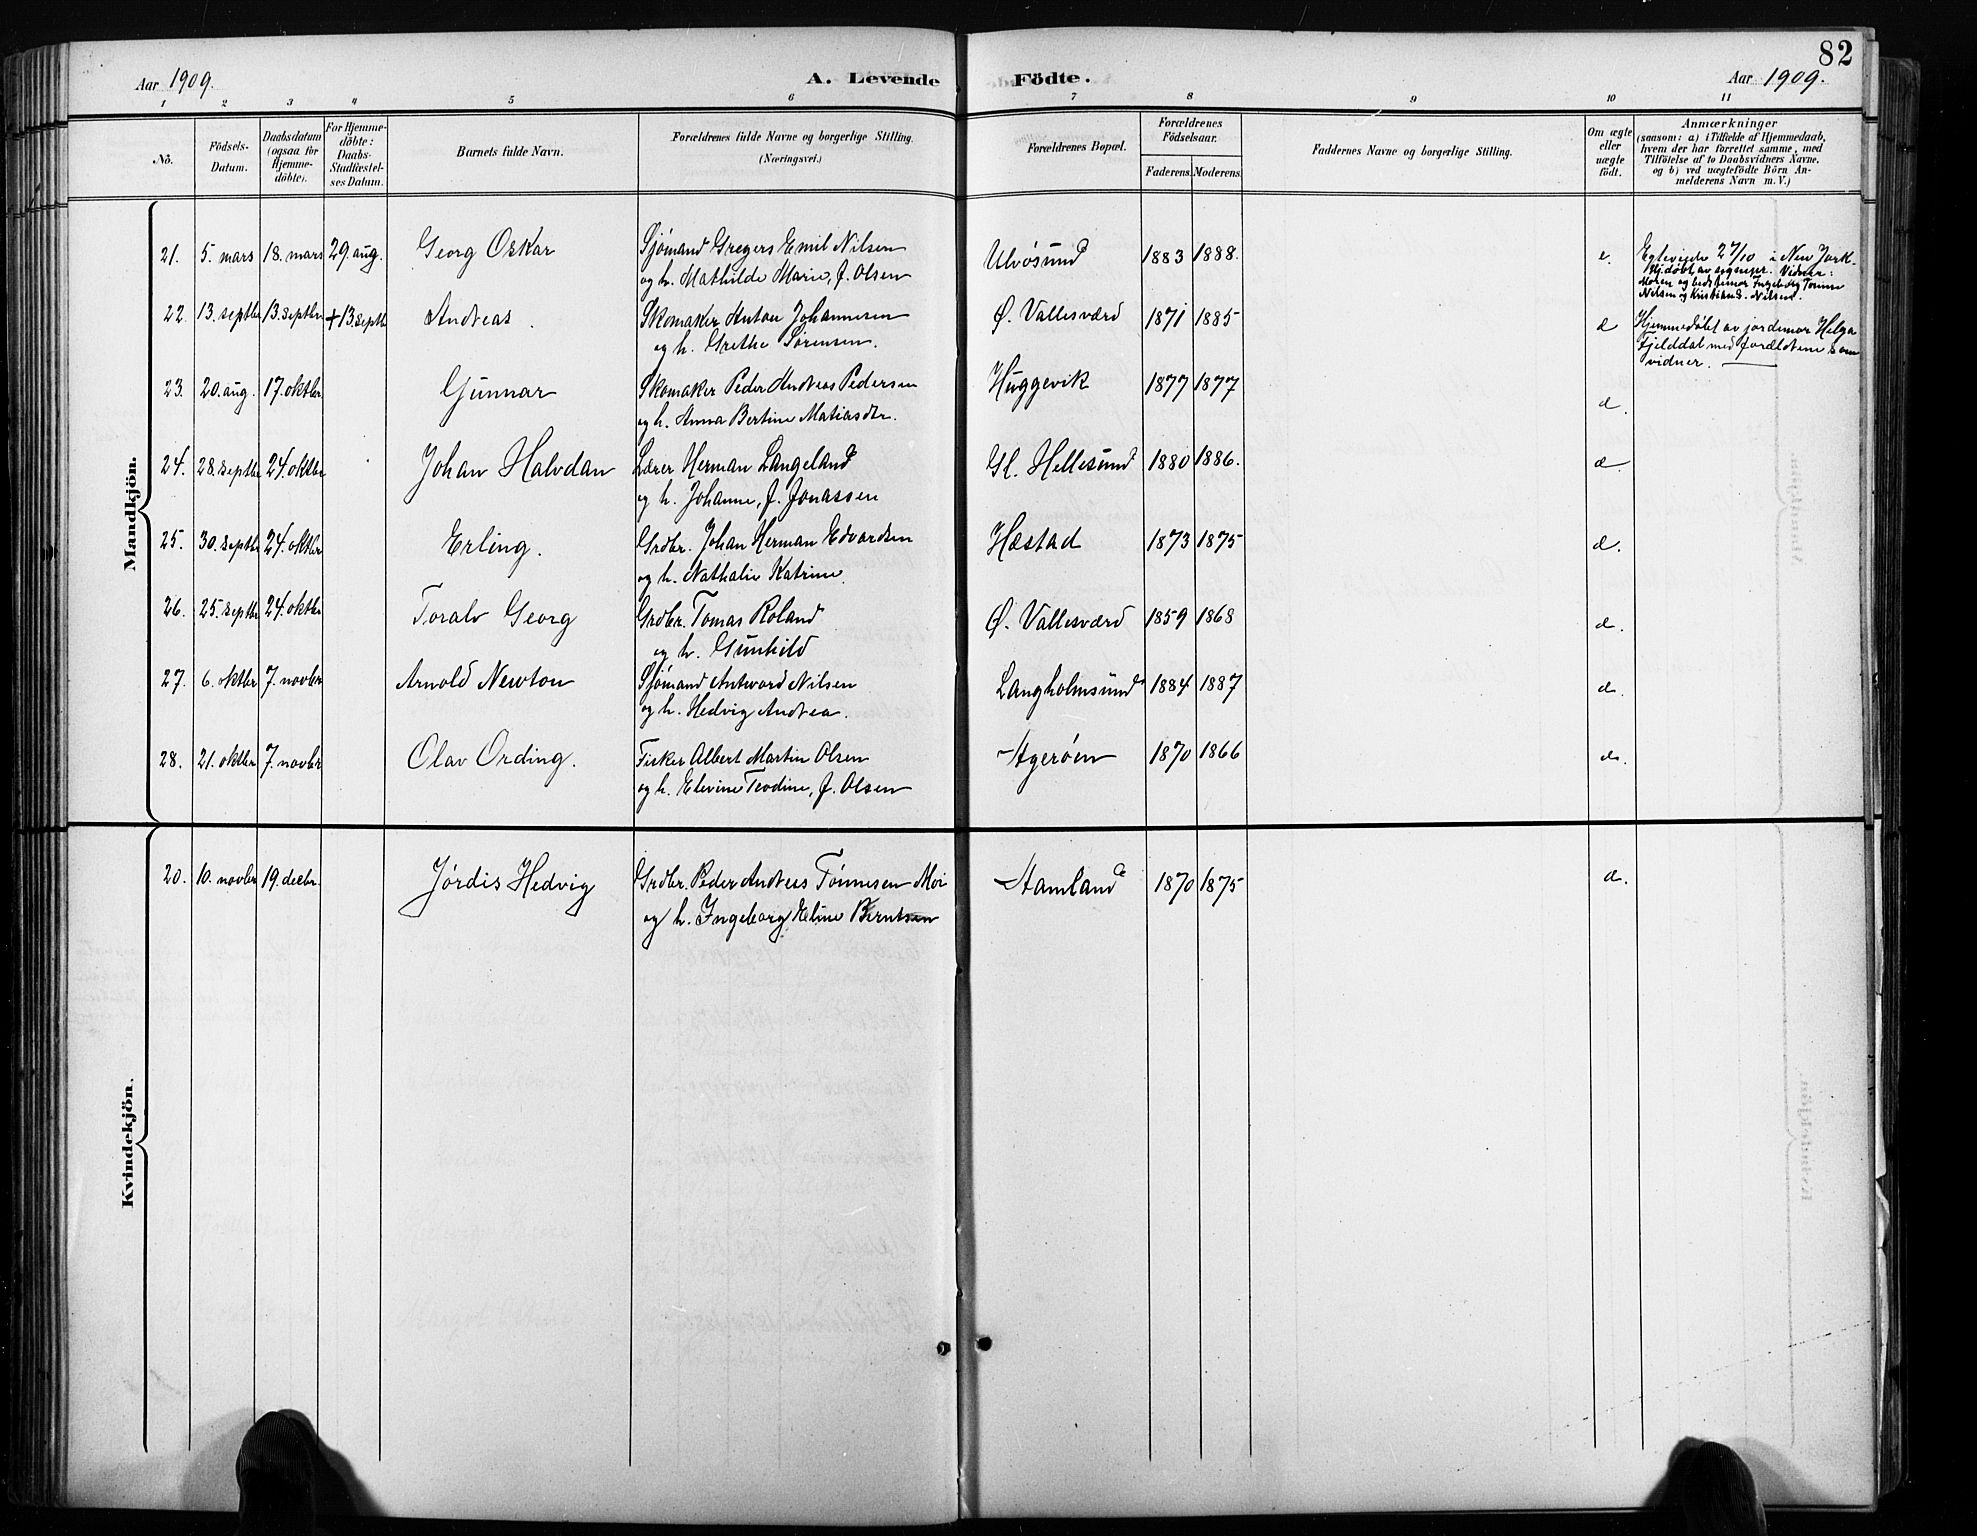 82
Aar 1909. A. Levende Födte. Aar 1909.
1 2 3 4 5 6 7 8 9 10 11
No.
Födsels-
Datum.
Daabsdatum
(ogsaa for
Hjemme-
döbte).
For Hjemme-
döbte:
Daabs-
Stadfæstel-
ses Datum.
Barnets fulde Navn.
Forældrenes fulde Navne og borgerlige Stilling.
(Næringsvei.)
Forældrenes Bopæl.
Forældrenes
Födselsaar.
Faderens. Moderens.
Faddernes Navne og borgerlige Stilling.
Om ægte
eller
uægte
födt.
Anmærkninger
(saasom: a) i Tilfælde af Hjemmedaab,
hvem der har forrettet samme, med
Tilföielse af to Daabsvidners Navne,
og b) ved uægtefödte Börn An-
melderens Navn m. V.)
Mandkjön.
21. 5. mars 18. mars 29 aug. Georg Oskar Sjömand Gregers Emil Nilsen Ulvösund 1883 1888. e.
og h. Mathilde Marie, f. Olsen
27/10 i New York
Hjdöbt av Vidner:
Moren og bedstemor Ingeborg Tomine
Nilsen og Nilsen.
22. 13. septbr 13. septbr +13. septbr Andreas. Skomaker Anton Johannesen Ø. Vallesværd 1871 1885 d
og h. Grethe Sørensen.
Hjemmedöbt av jordemor Helga
Fjelddal med forældrene som
vidner.
23. 20. aug. 17. oktbr Gunnar Skomaker Peder Andreas Pedersen Huggevik 1877 1877 d.
og h. Anna Bertine Matiasdtr.
24. 28. septbr 24. oktbr Johan Halvdan Lærer Herman Langeland Gl. Hellesund 1880 1886. d
og h. Johanne, f. Jonassen
25. 30. septbr 24. oktbr Erling. Grdbr. Johan Herman Edvardsen Hæstad 1873 1875 d.
og h. Nathalie Katrine.
26. 25. septbr 24. oktbr Toralv Georg Grdbr. Tomas Roland Ø. Vallesværd 1859 1868 d.
og h. Gunhild
27. 6. oktbr 7. novbr Arnold Newton Sjömand Antword Nilsen Langholmsund 1884 1887 d.
og h. Hedvig Andrea.
28. 21. oktbr 7. novbr Olav Ording. Fisker Albert Martin Olsen Agerøen 1870 1866 d.
og h. Elevine Teodine, f. Olsen
Kvindekjön.
20. 10. novbr 19. decbr. Jördis Hedvig Grdbr. Peder Andreas Tönnesen Moi Hamland 1870 1875 d.
og h. Ingeborg Eline Berntsen